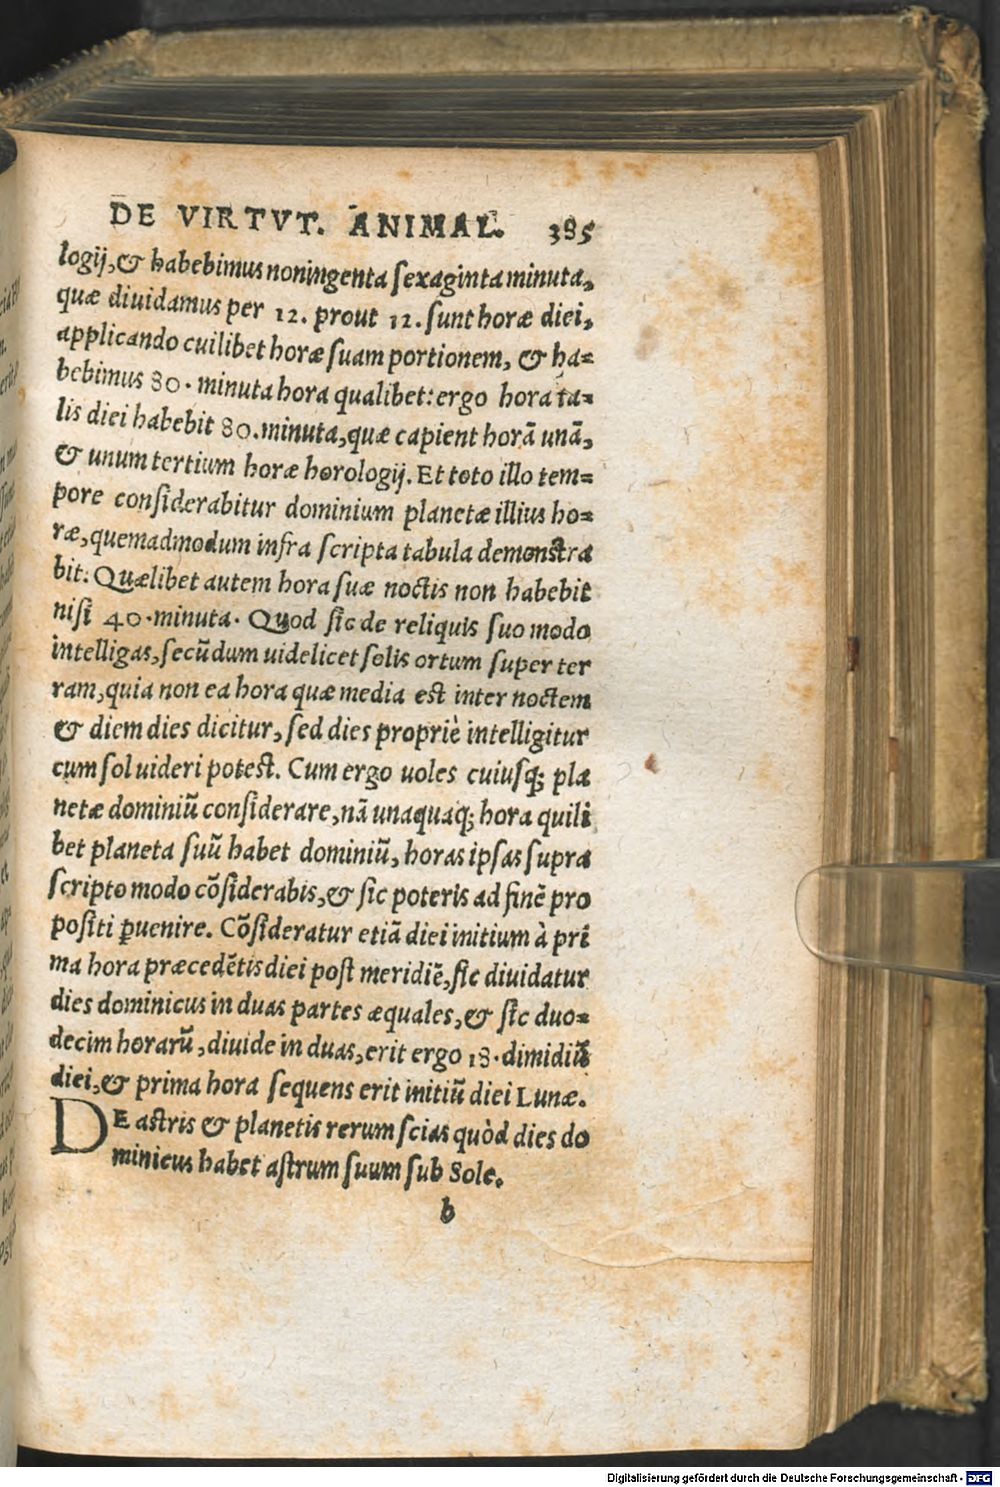 DE VIRTVT. ANIMAL. 385
logij,& habebimus noningenta ſexaginta minuta,
quæ diuidamus per 12. prout 12. ſunt horæ diei,
applicando cuilibet horæ ſuam portionem, & ha=
bebimus 80. minuta hora qualibet: ergo hora ta=
lis diei habebit 80. minuta, quæ capient horā unā,
& unum tertium horæ horologij. Et toto illo tem=
pore conſiderabitur dominium planetæ illius ho=
ræ, quemadmodum infra ſcripta tabula demonstra
bit: Quælibet autem hora ſuæ noctis non habebit
niſi 40. minuta. Quod ſic de reliquis ſuo modo
intelligas, ſecūdum uidelicet ſolis ortum ſuper ter
ram, quia non ea hora quæ media eſt inter noctem
& diem dies dicitur, ſed dies propriè intelligitur
cum ſol uideri poteſt. Cum ergo uoles cuiuſq; pla
netæ dominiū conſiderare, nā unaquaq; hora quili
bet planeta ſuū habet dominiū, horas ipſas ſupra
ſcripto modo cōſiderabis, & ſic poteris ad finē pro
poſiti ꝑuenire. Cōſideratur etiā diei initium à pri
ma hora præcedētis diei poſt meridiē, ſic diuidatur
dies dominicus in duas partes æquales, & ſic duo=
decim horarū, diuide in duas, erit ergo 18. dimidiū
diei, & prima hora ſequens erit initiū diei Lunæ.
DE aſtris & planetis rerum ſcias quòd dies do
minicus habet aſtrum ſuum ſub Sole.
b
Digitalisierung gefördert durch die Deutsche Forschungsgemeinschaft - DFG